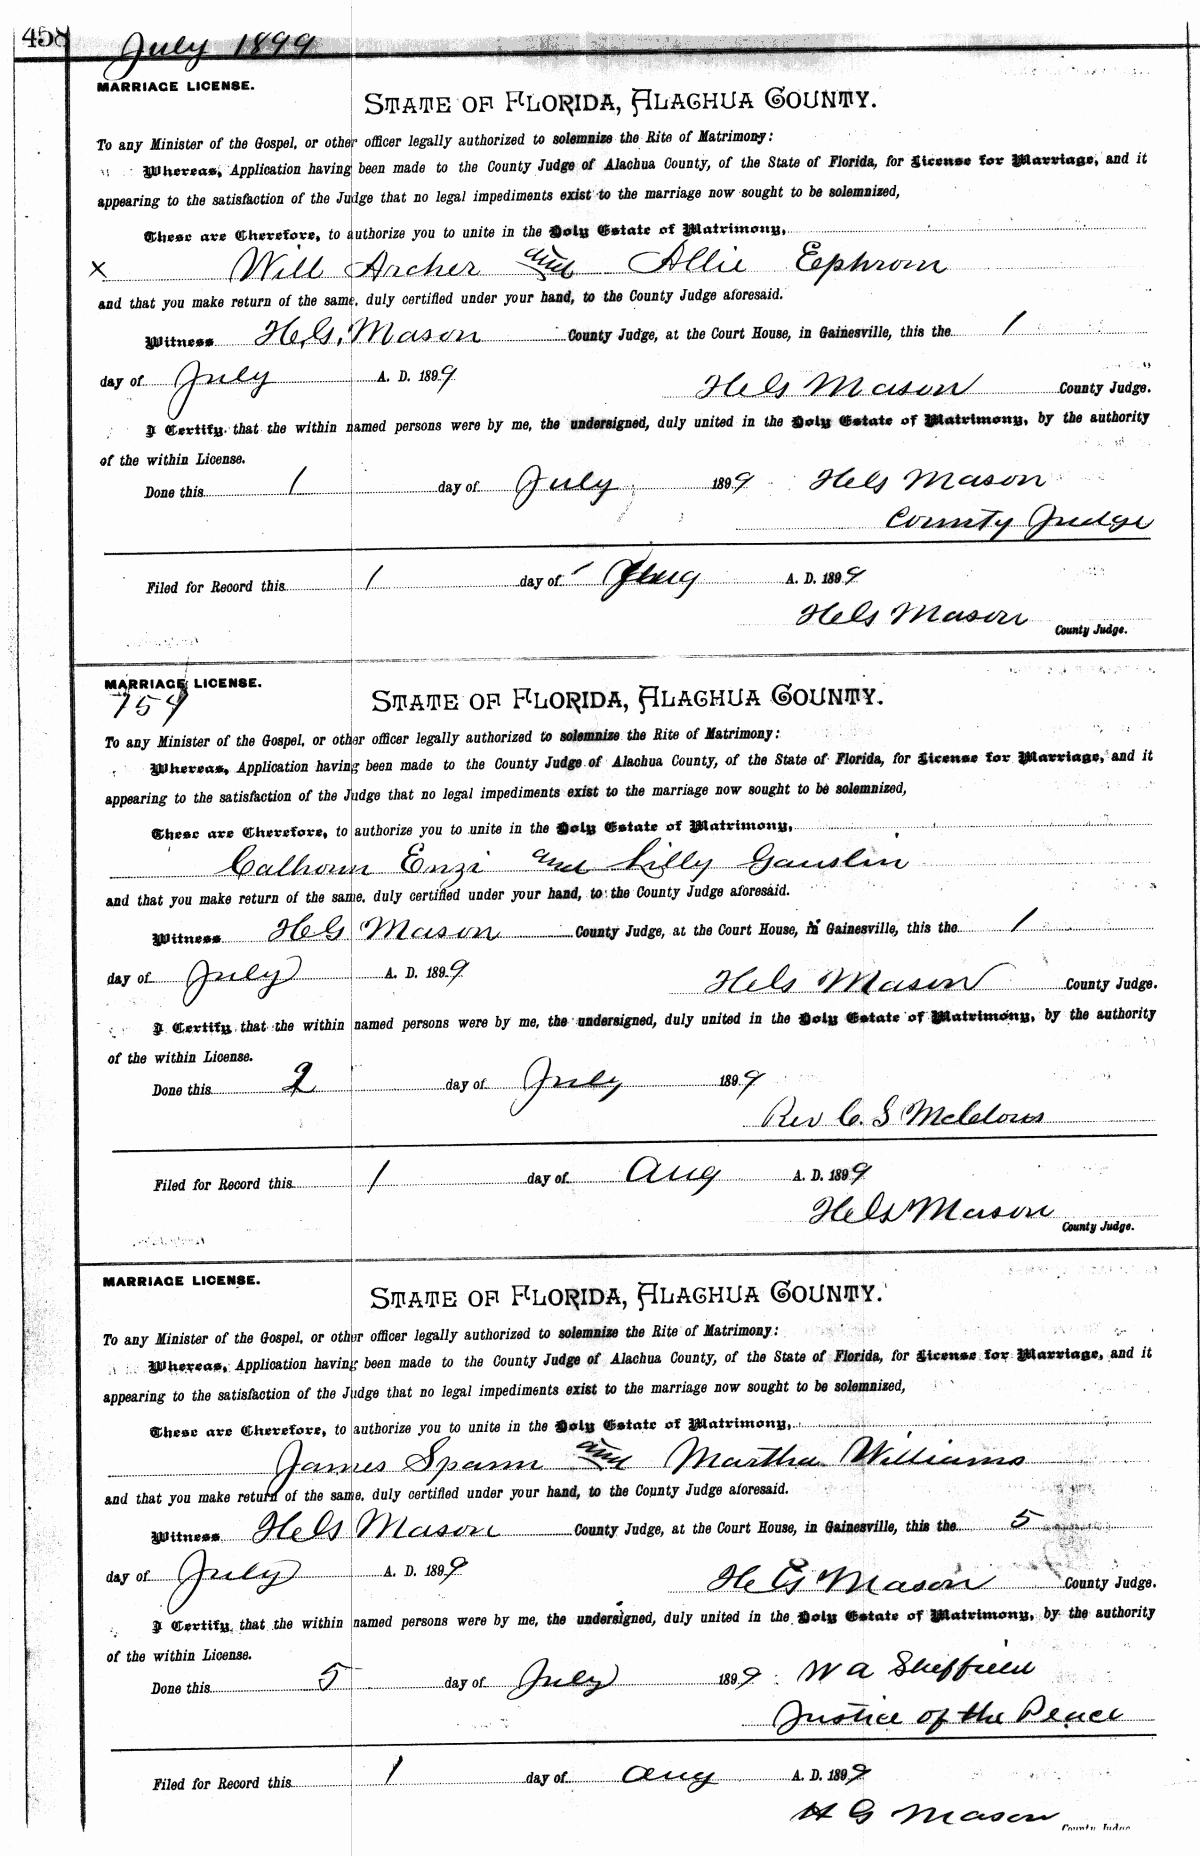 458
July 1899
MARRIAGE LICENSE.
STATE OF FLORIDA, ALACHUA COUNTY.
To any Minister of the Gospel, or other officer legally authorized to solemnize the Rite of Matrimony:
Whereas, Application having been made to the County Judge of Alachua County, of the State of Florida, for License for Marriage, and it
appearing to the satisfaction of the Judge that no legal impediments exist to the marriage now sought to be solemnized,
These are Therefore, to authorize you to unite in the Holy Estate of Matrimony,
x Will Archer and Allie Ephrom
and that you make return of the same, duly certified under your hand, to the County Judge aforesaid.
Witness H.G. Mason County Judge, at the Court House, in Gainesville, this the 1
day of July A. D. 1899 H G Mason County Judge.
I Certify that the within named persons were by me, the undersigned, duly united in the Holy Estate of Matrimony, by the authority
of the within License.
Done this 1 day of July 1899 H G Mason
County Judge
Filed for Record this 1 day of Aug A. D. 1899
H G Mason
County Judge.
MARRIAGE LICENSE.
754
STATE OF FLORIDA, ALACHUA COUNTY.
To any Minister of the Gospel, or other officer legally authorized to solemnize the Rite of Matrimony:
Whereas, Application having been made to the County Judge of Alachua County, of the State of Florida, for License for Marriage, and it
appearing to the satisfaction of the Judge that no legal impediments exist to the marriage now sought to be solemnized,
These are Therefore, to authorize you to unite in the Holy Estate of Matrimony,
Calhoun Enzi and Lilly Gauslin
and that you make return of the same, duly certified under your hand, to the County Judge aforesaid.
Witness H G Mason County Judge, at the Court House, in Gainesville, this the 1
day of July A. D. 1899 H G Mason County Judge.
I Certify that the within named persons were by me, the undersigned, duly united in the Holy Estate of Matrimony, by the authority
of the within License.
Done this 2 day of July 1899
Rev C. S
Filed for Record this 1 day of Aug A. D. 1899
H G Mason
County Judge.
MARRIAGE LICENSE.
STATE OF FLORIDA, ALACHUA COUNTY.
To any Minister of the Gospel, or other officer legally authorized to solemnize the Rite of Matrimony:
Whereas, Application having been made to the County Judge of Alachua County, of the State of Florida, for License for Marriage, and it
appearing to the satisfaction of the Judge that no legal impediments exist to the marriage now sought to be solemnized,
These are Therefore, to authorize you to unite in the Holy Estate of Matrimony,
James Spann and Martha Williams
and that you make return of the same, duly certified under your hand, to the County Judge aforesaid.
Witness H G Mason County Judge, at the Court House, in Gainesville, this the 5
day of July A. D. 1899 H G Mason County Judge.
I Certify that the within named persons were by me, the undersigned, duly united in the Holy Estate of Matrimony, by the authority
of the within License.
Done this 5 day of July 1899 W A Sheffield
Justice of the Peace
Filed for Record this 1 day of Aug A. D. 1899
H G Mason
County Judge